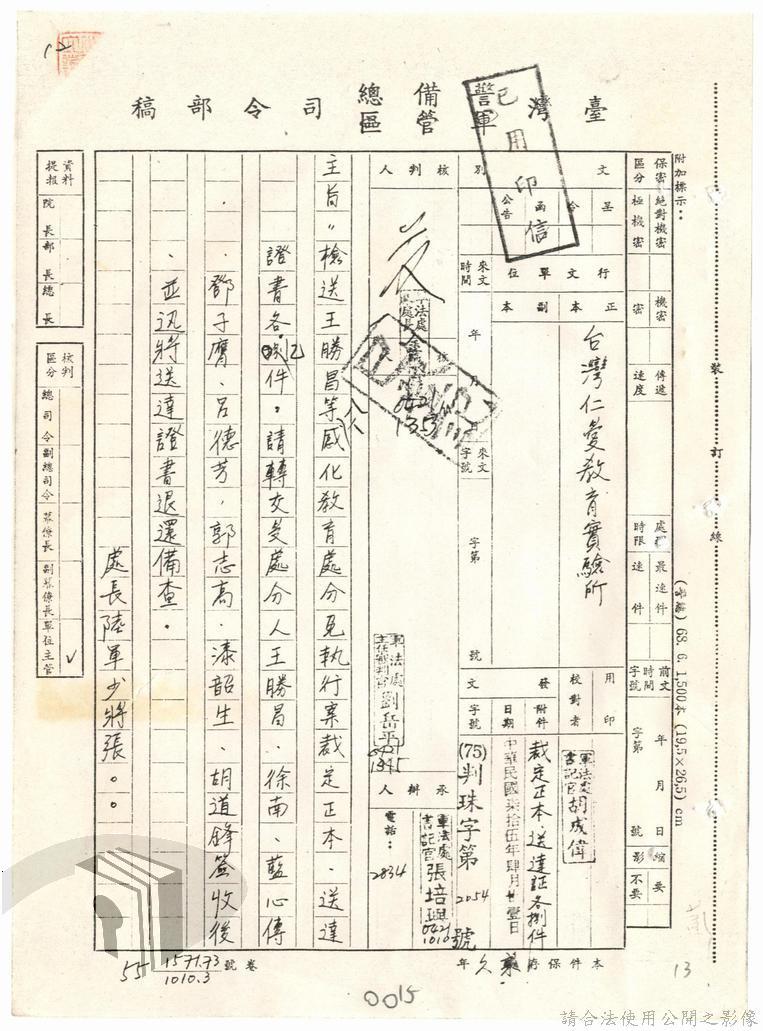 12
臺灣警備總司令部稿
軍管區
已用印信
附加標示：
保密區分
絕對機密
極機密
機密
密
傳遞速度
處理時限
最速件
速件
前文時間字號
年 月 日
字第 號
縮影
要
不要
文別
呈
令
函
公告
行文單位
正本
副本
台灣仁愛教育實驗所
來文時間
年 月 日
來文字號
字第 號
用印
校對者
軍法處書記官胡成偉
發文
附件
裁定正本、送達証各捌件
日期
中華民國柒拾伍年肆月廿壹日
字號
(75)判珠字第2054號
核判人
核
0421
1353
軍法處主任審判官劉岳平
0421
1345
承辦人
軍法處書記官張培興
0421
1010
電話：2834
主旨：檢送王勝昌等八人感化教育處分免執行案裁定正本、送達
證書各乙件。請轉交受處分人王勝昌、徐南、藍心傳
、鄧子膺、呂德芳、郭志高、漆韶生、胡道鋒簽收後
、並迅將送達證書退還備查。
處長陸軍少將張。。
資料提報
院長
部長
總長
核判區分
總司令
副總司令
幕僚長
副幕僚長
單位主管
✓
本件保存
永久
年
卷號
1571.73
1010.3
55
裝訂線
68. 6. 1,500本 (19.5×26.5) cm
0015
13
請合法使用公開之影像